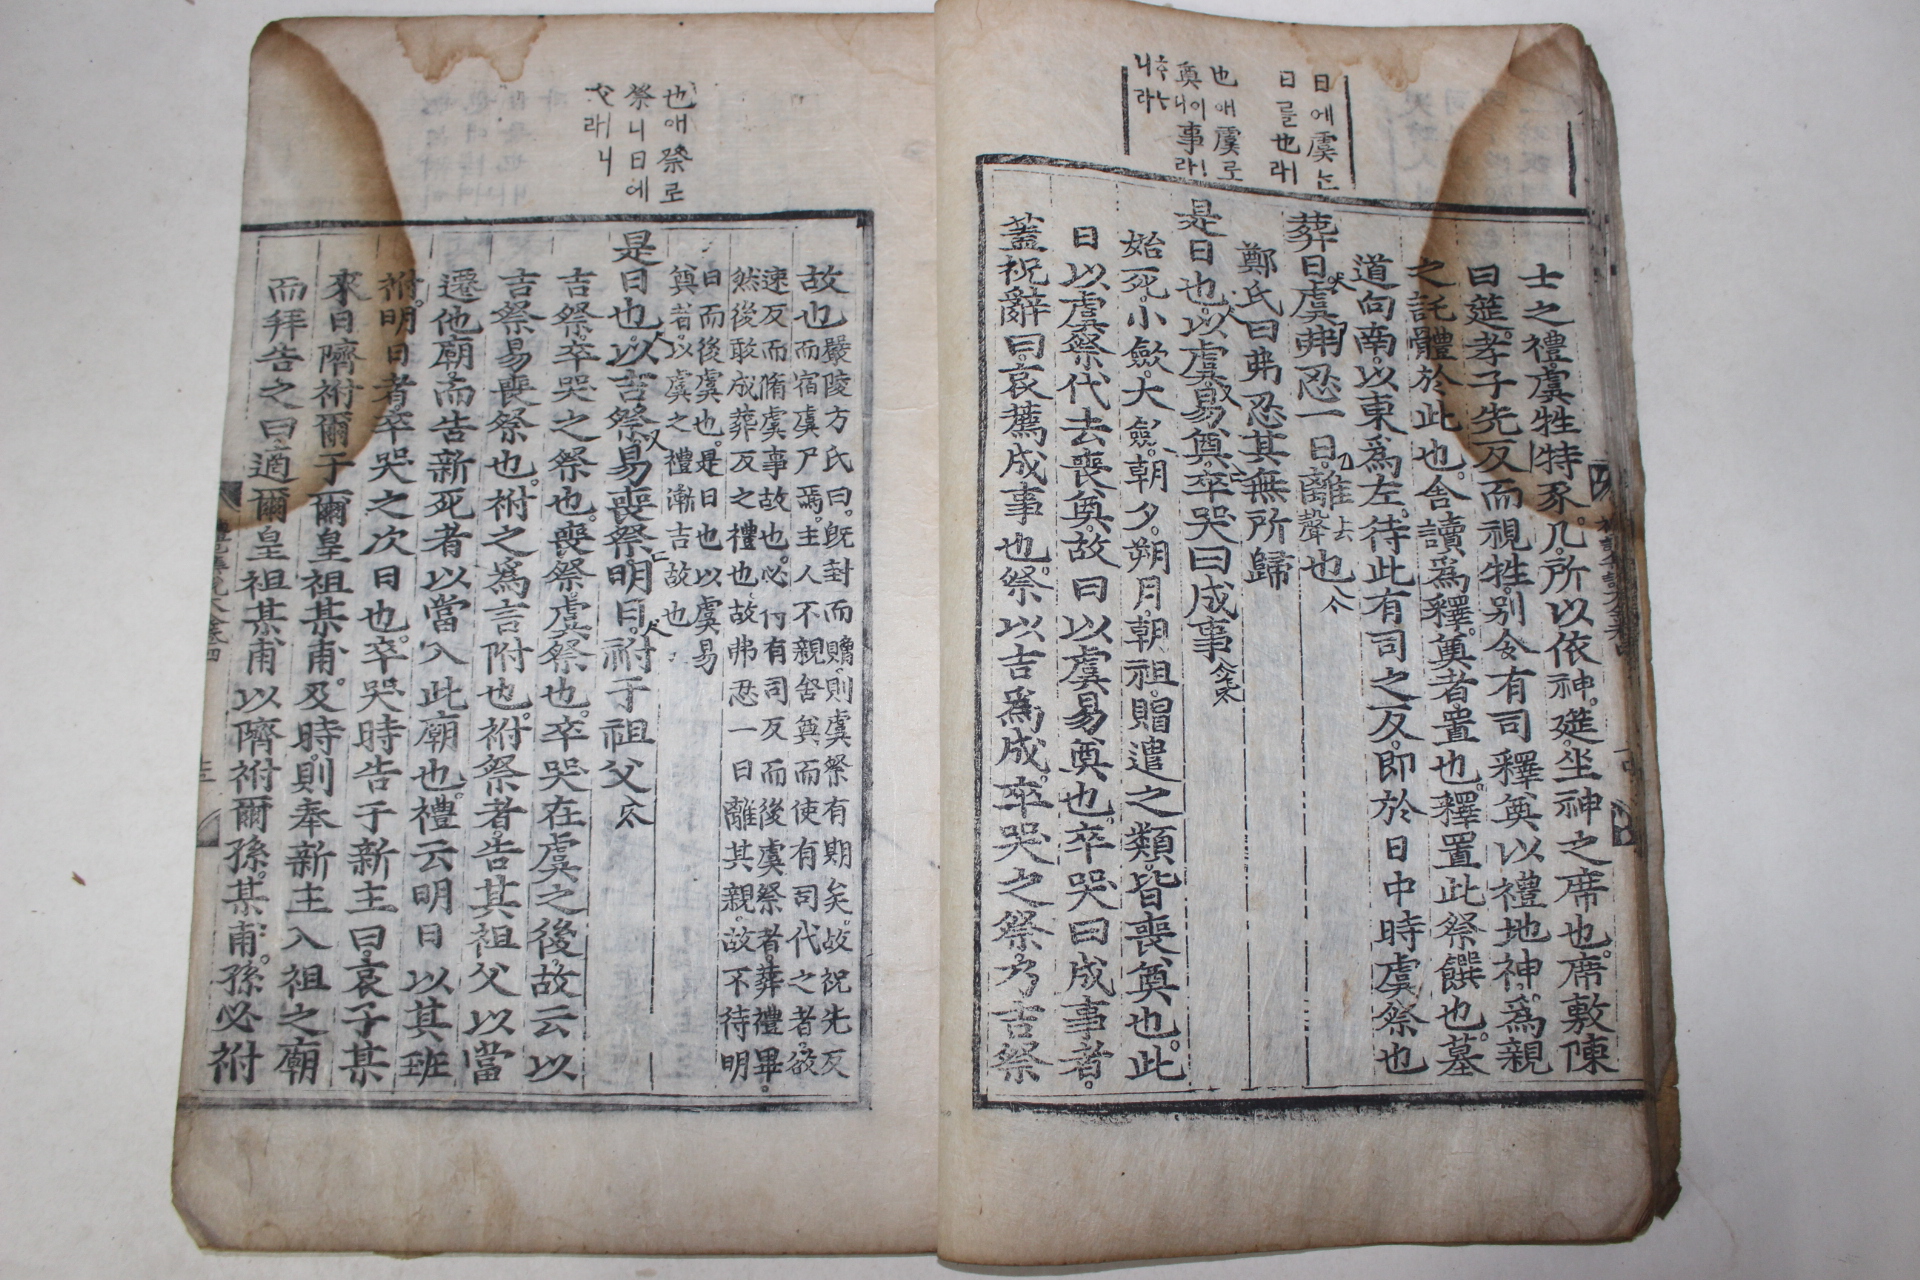 日에虞는
日를也라
也애虞로
奠이事라
士之禮虞牲特豕几所以依神筵坐神之席也席敷陳
曰筵孝子先反而視牲別令有司釋奠以禮地神爲親
之託體於此也舍讀爲釋奠者置也釋置此祭饌也墓
道向南以東爲左待此有司之反即於日中時虞祭也
葬日虞弗忍一日離去聲也
鄭氏曰弗忍其無所歸
是日也以虞易奠卒哭曰成事
始死小斂大斂朝夕朔月朝祖賵遣之類皆喪奠也此
日以虞祭代去喪奠故曰以虞易奠也卒哭曰成事者
蓋祝辭曰哀薦成事也祭以吉爲成卒哭之祭乃吉祭
也애祭로
祭니日에
故也嚴陵方氏曰旣封而贈則虞祭有期矣故祝先反
而宿虞尸焉主人不親舍奠而使有司代之者欲
速反而脩虞事故也必何有司反而後虞祭者葬禮畢
然後敢成葬反之禮也故弗忍一日離其親故不待明
日而後虞也是日也以虞易
奠者以虞之禮漸吉故也
是日也以吉祭易喪祭明日祔于祖父
吉祭卒哭之祭也喪祭虞祭也卒哭在虞之後故云以
吉祭易喪祭也祔之爲言附也祔祭者告其祖父以當
遷他廟而告新死者以當入此廟也禮云明日以其班
祔明日者卒哭之次日也卒哭時告于新主曰哀子某
來日隮祔爾于爾皇祖某甫及時則奉新主入祖之廟
而拜告之曰適爾皇祖某甫以隮祔爾孫某甫孫必祔